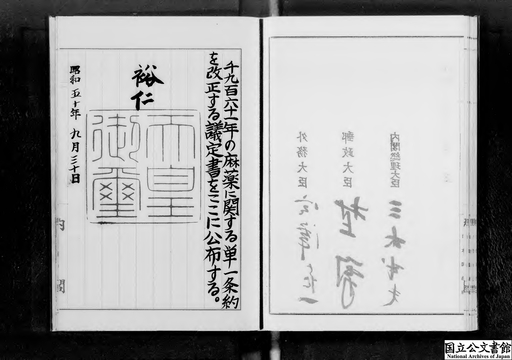 千九百六十一年の麻薬に関する単一条約
を改正する議定書をここに公布する。
裕仁
天皇
御璽
昭和五十年九月三十日
内閣総理大臣
三木武夫
郵政大臣
外務大臣
宮澤喜一
内閣
国立公文書館
National Archives of Japan